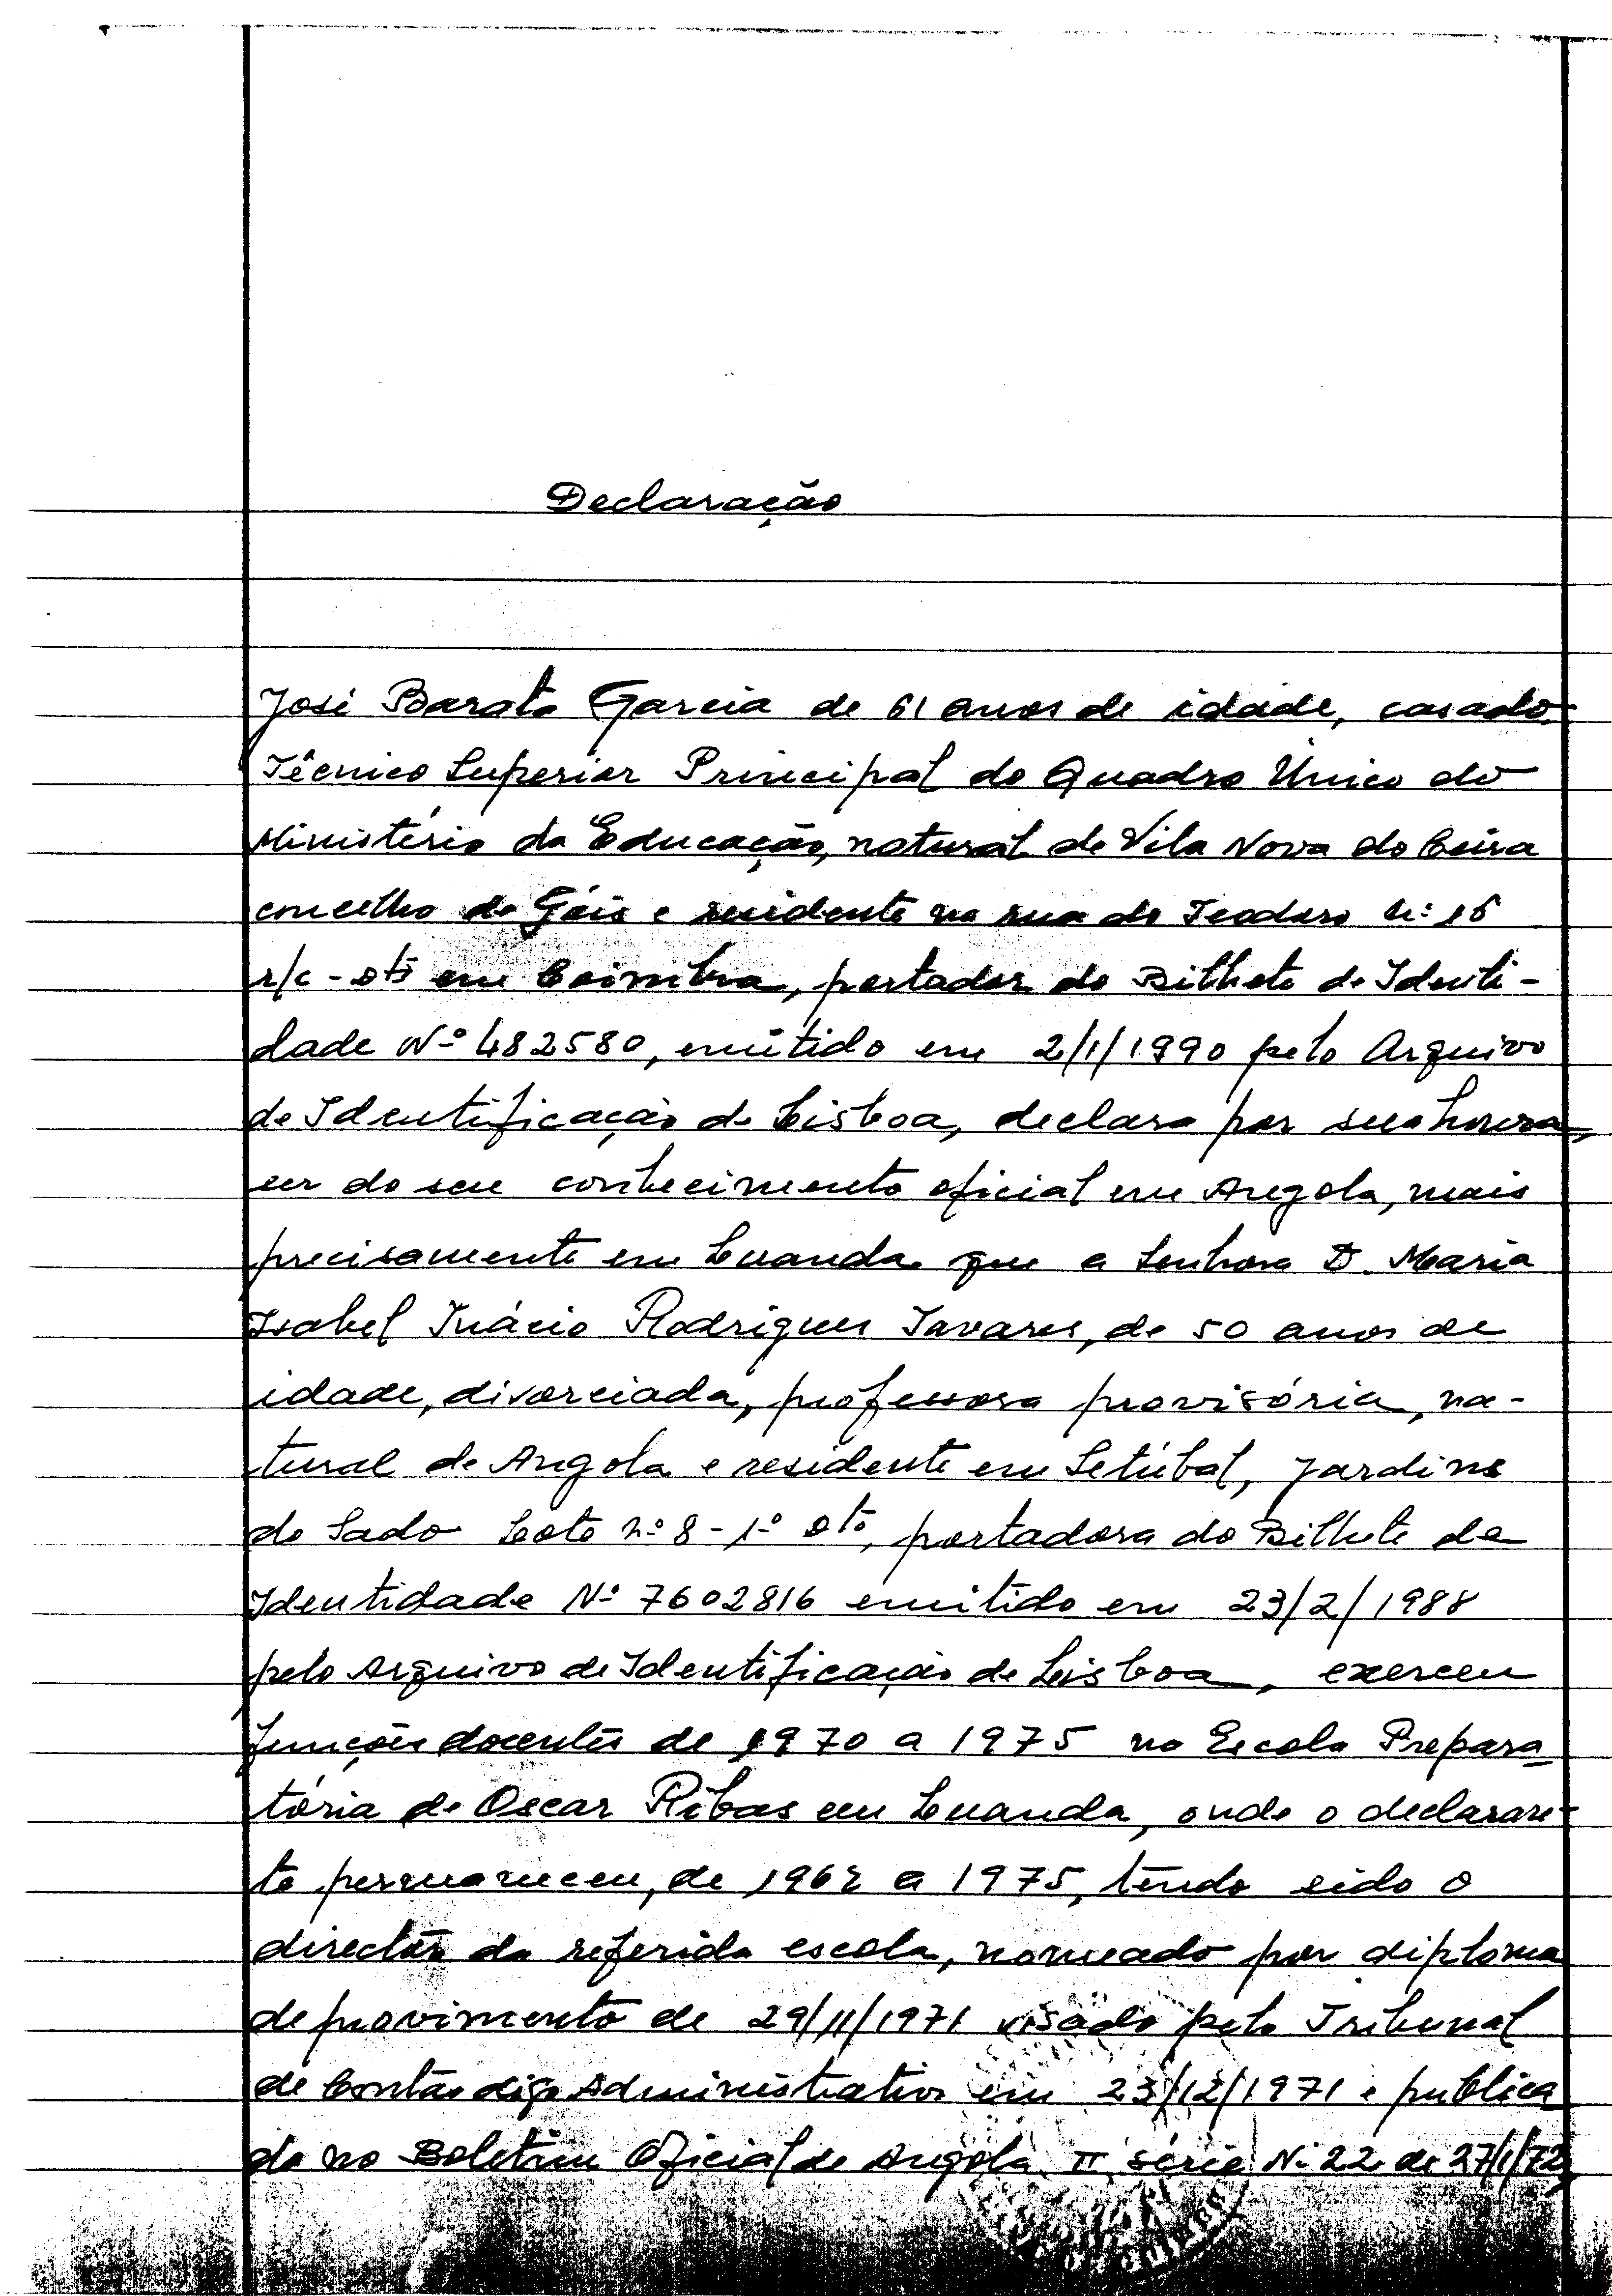 Declaração
José Barata Garcia de 61 anos de idade, casado,
Técnico Superior Principal do Quadro Único do
Ministério da Educação, natural de Vila Nova do Ceira
concelho de Góis e residente na rua do Teodoro Nº 16
r/c - dtº em Coimbra, portador do Bilhete de Identi-
dade Nº 482580, emitido em 2/1/1990 pelo Arquivo
de Identificação de Lisboa, declara por sua honra,
ser do seu conhecimento oficial em Angola, mais
precisamente em Luanda que a Senhora D. Maria
Isabel Inácio Rodrigues Tavares, de 50 anos de
idade, divorciada, professora provisória, na-
tural de Angola e residente em Setúbal, Jardins
do Sado Lote nº 8 - 1º dtº, portadora do Bilhete de
Identidade Nº 7602816 emitido em 23/2/1988
pelo Arquivo de Identificação de Lisboa, exerceu
funções docentes de 1970 a 1975 na Escola Prepara
tória de Oscar Ribas em Luanda, onde o declaran-
te permaneceu, de 1968 a 1975, tendo sido o
director da referida escola, nomeado por diploma
de provimento de 29/11/1971 visado pelo Tribunal
de Contas digo Administrativo em 23/12/1971 e publica
do no Boletim Oficial de Angola II série Nº 22 de 27/1/72,